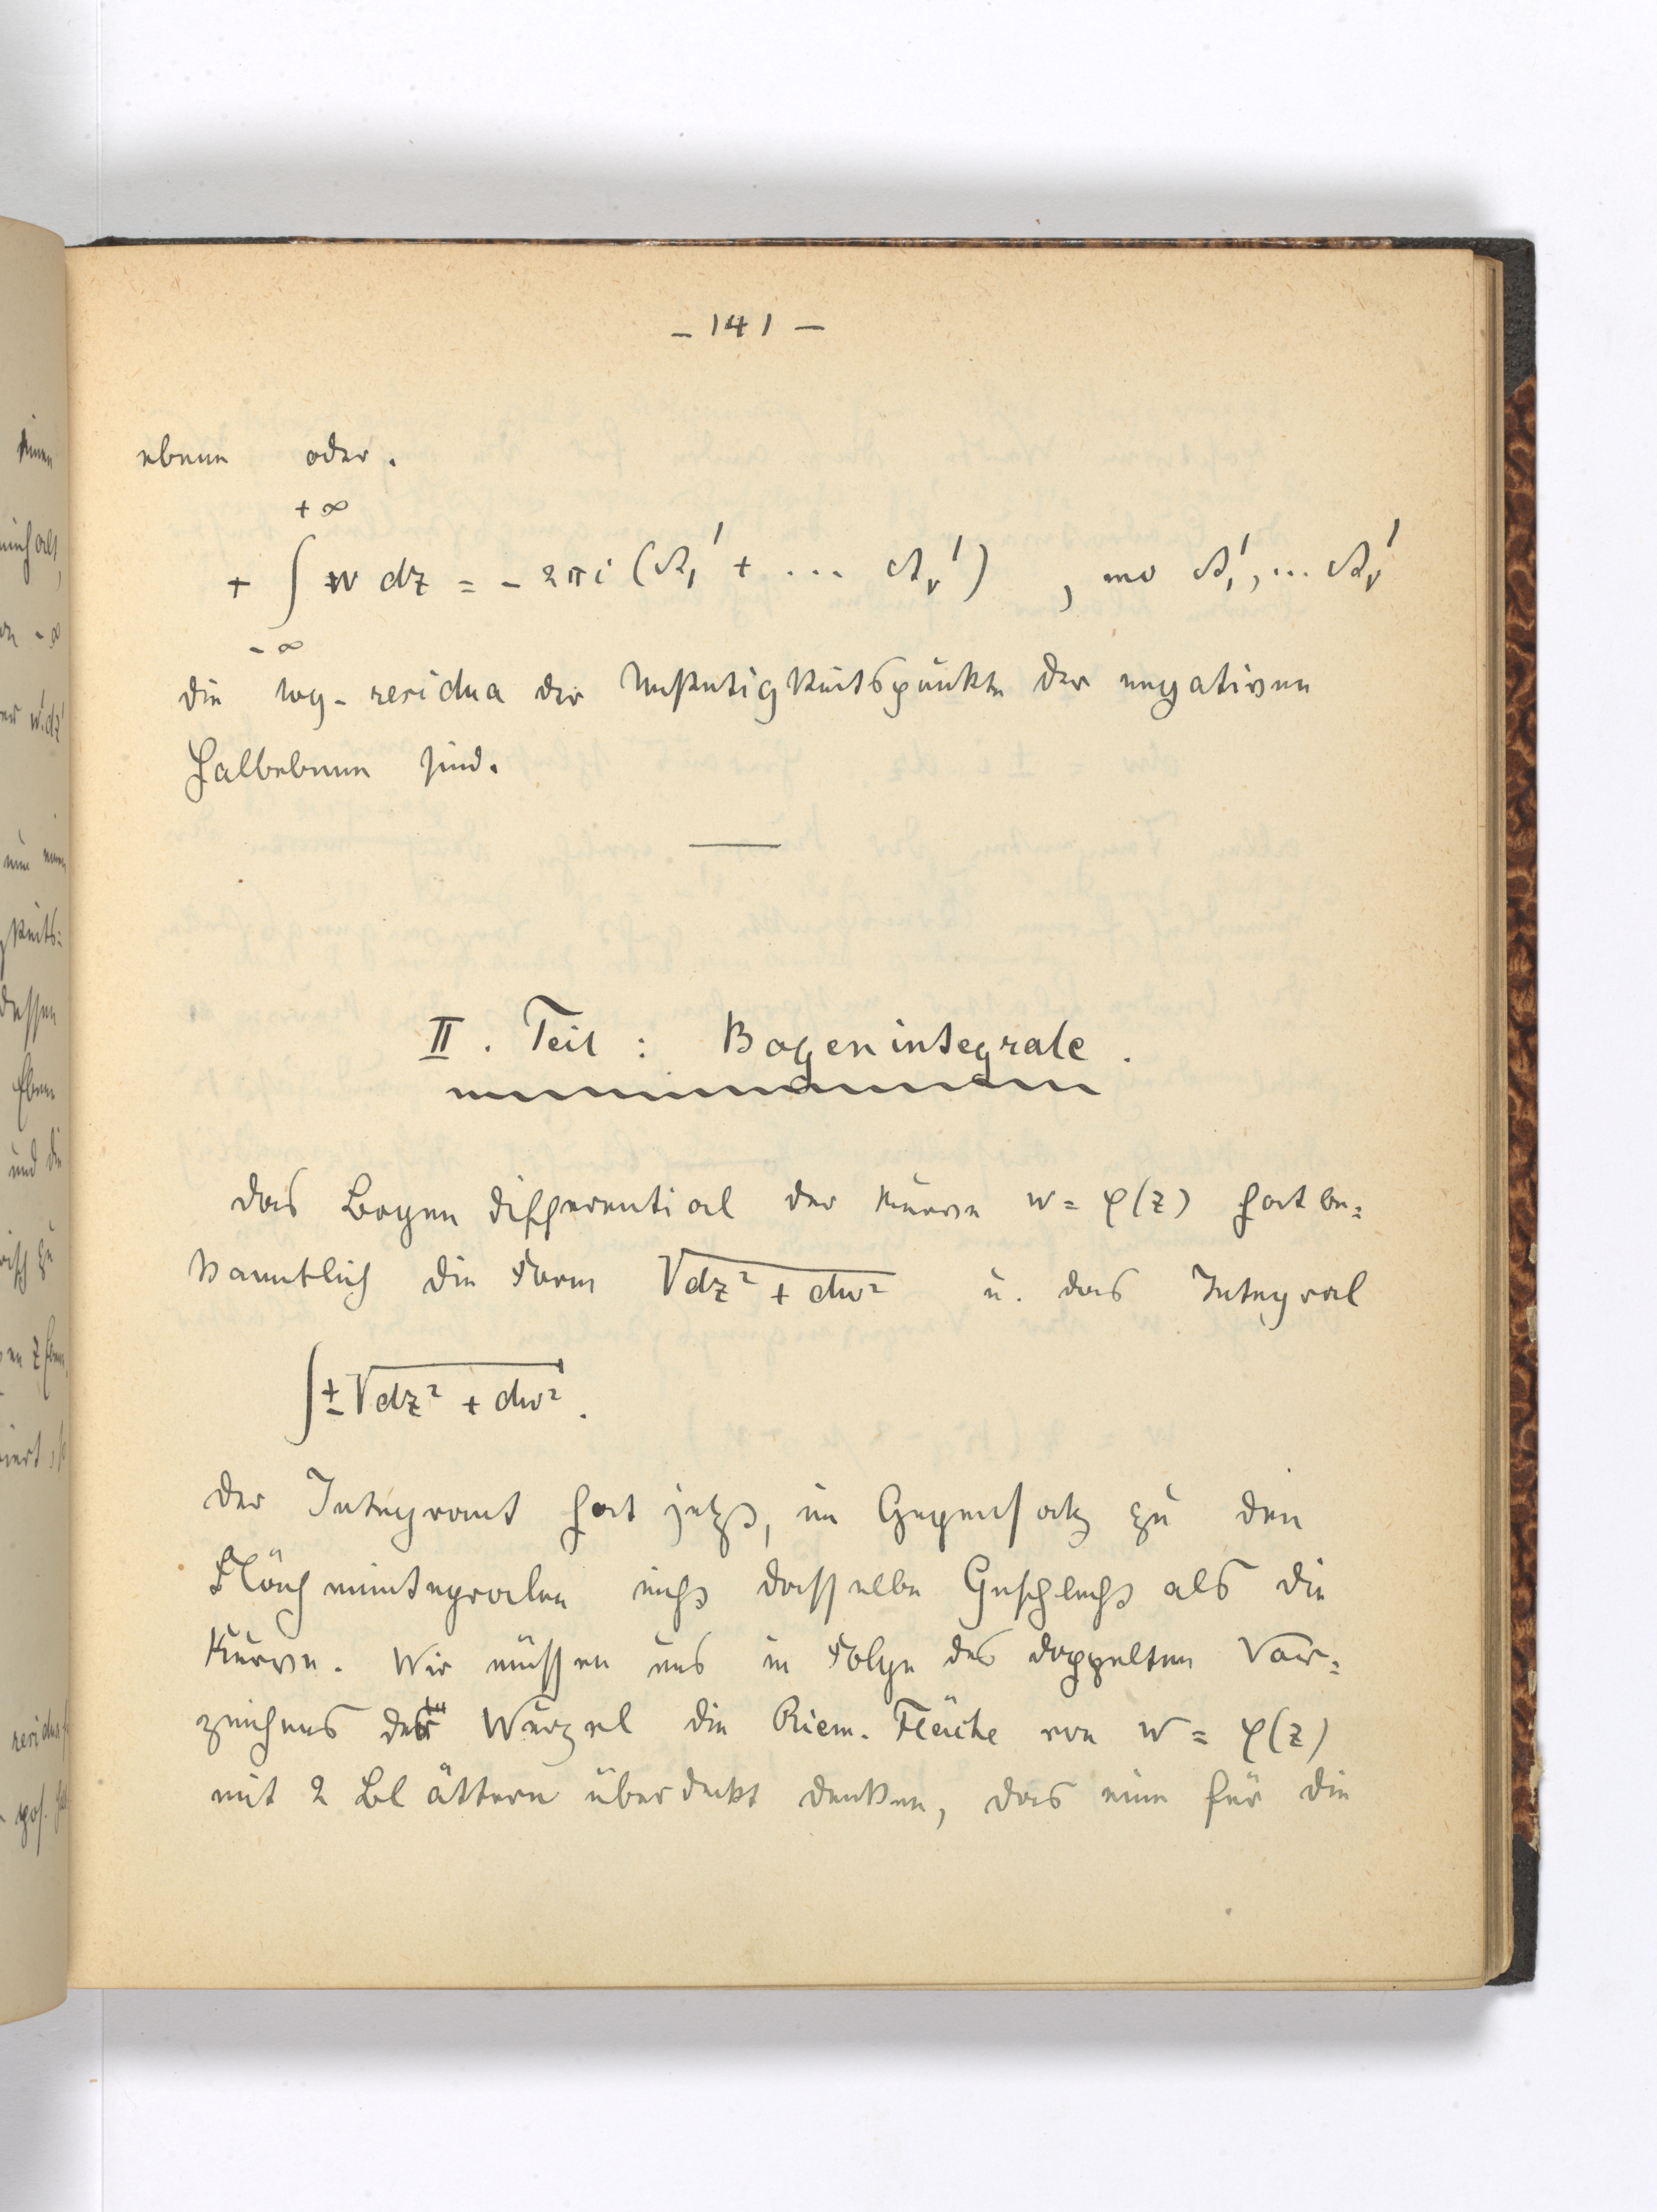 - 141 -
ebene oder.
+ ∞
+ ∫ w dz = - 2πi (A₁' + ... Aᵥ') , wo A₁', ... Aᵥ'
- ∞
die log-residua der Unstetigkeitspunkte der negativen
Halbebene sind.
II. Teil : Bogenintegrale.
Das Bogendifferential der Kurve w = φ(z) hat be=
kanntlich die Form √dz² + dw² u. das Integral
∫ ± √dz² + dw².
Der Integrant hat jetzt, im Gegensatz zu den
Flächenintegralen nicht dasselbe Geschlecht als die
Kurve. Wir müssen uns in Folge des doppelten Vor=
zeichens der Wurzel die Riem. Fläche von w = φ(z)
mit 2 Blättern überdeckt denken, das eine für die